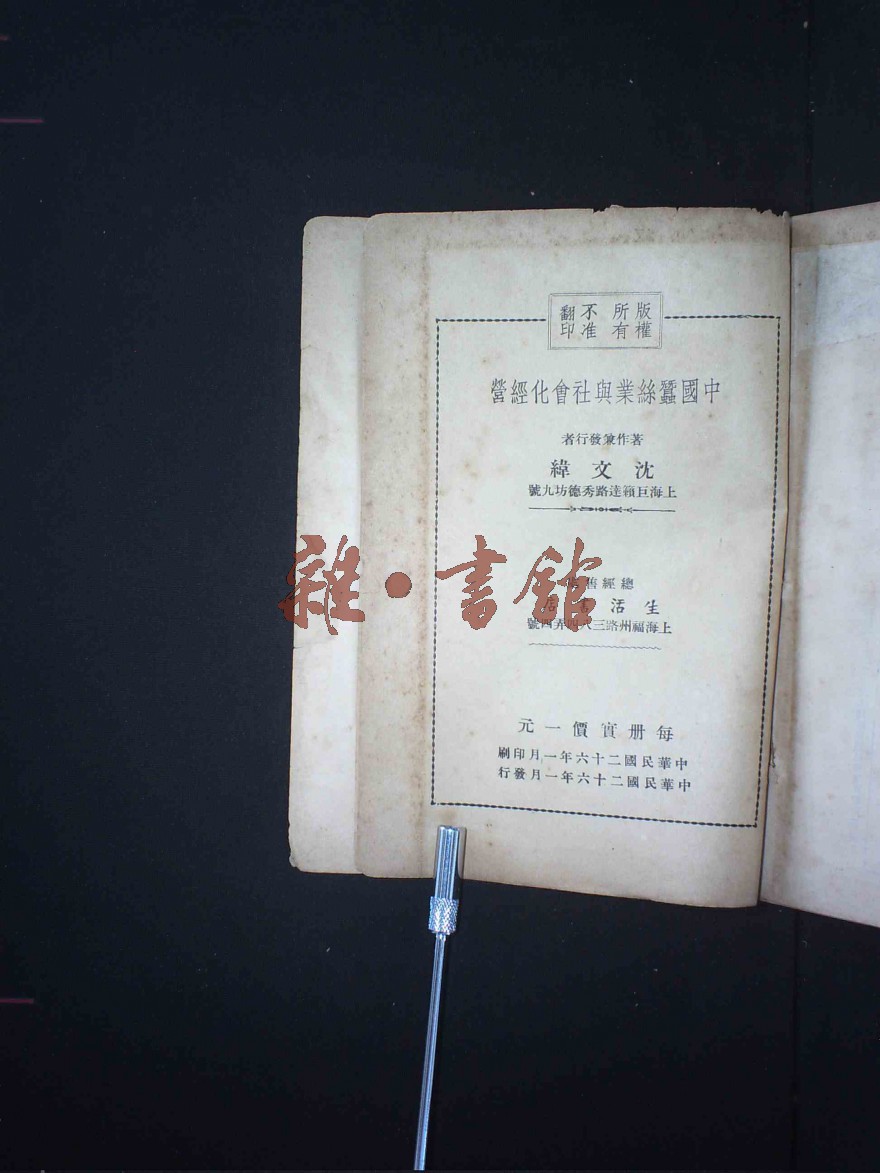 版權所有
不准翻印
中國蠶絲業與社會化經營
著作兼發行者
沈文緯
上海巨籟達路秀德坊九號
總經售處
生活書店
上海福州路三八四弄四號
每册實價一元
中華民國二十六年一月印刷
中華民國二十六年一月發行
雜·書館